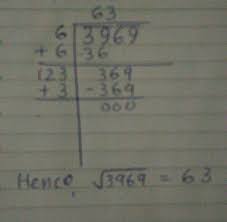 63
6 3969
+ 6 36
123 369
+ 3 -369
000
Hence, √3969 = 63